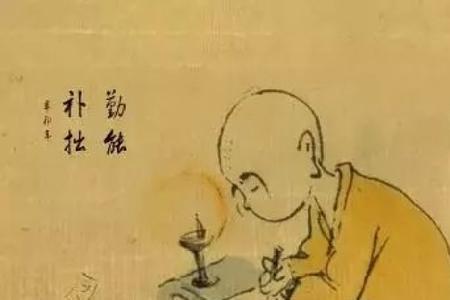 勤能
补拙